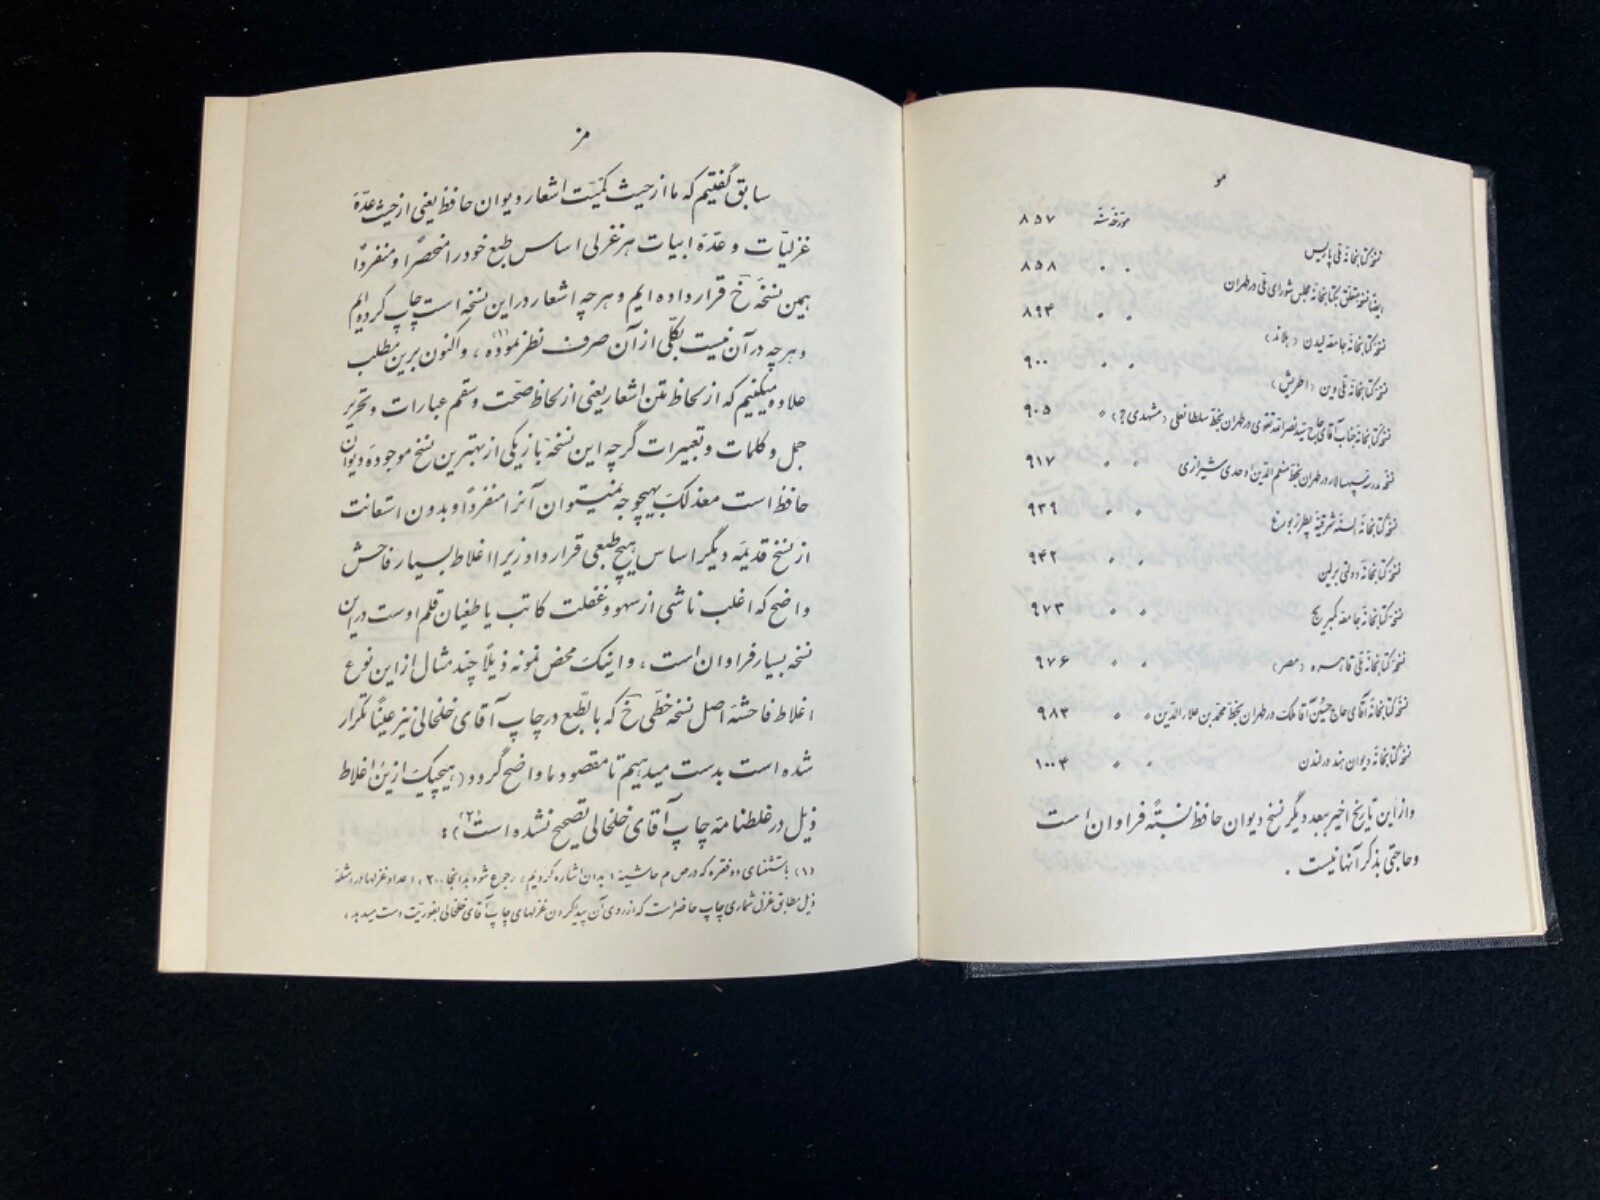 مو
نسخهٔ کتابخانهٔ ملّی پاریس مورّخهٔ سنهٔ ۸۵۷
ایضاً نسخهٔ متعلّق بکتابخانهٔ مجلس شورای ملّی در طهران » » ۸۵۸
نسخهٔ کتابخانهٔ جامعهٔ لیدن (هلاند) » » ۸۹۴
نسخهٔ کتابخانهٔ ملّی وین (اطریش) » » ۹۰۰
نسخهٔ کتابخانهٔ جناب آقای حاج سیّد نصرالله تقوی در طهران بخطّ سلطانعلی (مشهدی؟) » ۹۰۵
نسخهٔ مدرسهٔ سپهسالار در طهران بخطّ منعم الدّین اوحدی شیرازی » » ۹۱۷
نسخهٔ کتابخانهٔ السنهٔ شرقیّهٔ پطرزبورغ » » ۹۳۹
نسخهٔ کتابخانهٔ دولتی برلین » » ۹۴۲
نسخهٔ کتابخانهٔ جامعهٔ کمبریج » » ۹۷۳
نسخهٔ کتابخانهٔ ملّی قاهره (مصر) » » ۹۷۶
نسخهٔ کتابخانهٔ آقای حاج حسین آقا ملک در طهران بخطّ محمّد بن علاء الدّین » » ۹۸۳
نسخهٔ کتابخانهٔ دیوان هند در لندن » » ۱۰۰۴
و از این تاریخ اخیر ببعد دیگر نسخ دیوان حافظ نسبةً فراوان است
و حاجتی بذکر آنها نیست .
مز
سابق گفتیم که ما از حیث کمّیّت اشعار دیوان حافظ یعنی از حیث عدّهٔ
غزلیّات و عدّهٔ ابیات هر غزلی اساس طبع خود را منحصراً و منفرداً
همین نسخهٔ خ قرار داده ایم و هر چه اشعار در این نسخه است چاپ کرده ایم
و هر چه در آن نیست بکلّی از آن صرف نظر نموده(۱)، و اکنون برین مطلب
علاوه میکنیم که از لحاظ متن اشعار یعنی از لحاظ صحّت و سقم عبارات و تحریر
جمل و کلمات و تعبیرات گرچه این نسخه باز یکی از بهترین نسخ موجودهٔ دیوان
حافظ است معذلک بهیچوجه نمیتوان آنرا منفرداً و بدون استعانت
از نسخ قدیمهٔ دیگر اساس هیچ طبعی قرار داد زیرا اغلاط بسیار فاحش
واضح که اغلب ناشی از سهو و غفلت کاتب یا طغیان قلم اوست در این
نسخه بسیار فراوان است، و اینک محض نمونه ذیلاً چند مثال از این نوع
اغلاط فاحشهٔ اصل نسخهٔ خطّی خ که بالطّبع در چاپ آقای خلخالی نیز عیناً تکرار
شده است بدست میدهیم تا مقصود ما واضح گردد (هیچیک از ین اغلاط
ذیل در غلطنامهٔ چاپ آقای خلخالی تصحیح نشده است(۲)):
(۱) باستثنای دو فقره که در ص م حاشیهٔ ۱ بدان اشاره کردیم، رجوع شود بدانجا، (۲) اعداد غزلها در امثلهٔ
ذیل مطابق غزل شماری چاپ حاضر است که از روی آن پیدا کردن غزلهای چاپ آقای خلخالی بفوریّت دست میدهد،